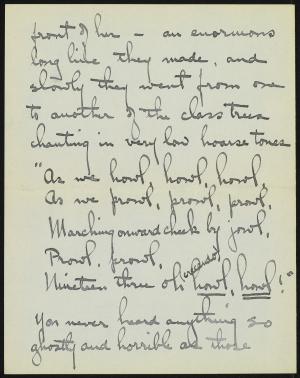 front of her – an enormous
long line they made, and
slowly they went from one
to another of the class trees
chanting in very low hoarse tones
"As we howl, howl, howl,
As we prowl, prowl, prowl,
Marching onward cheek by jowl,
Prowl, prowl,
Nineteen three oh howl, howl!"
You never heard anything so
ghostly and horrible as those